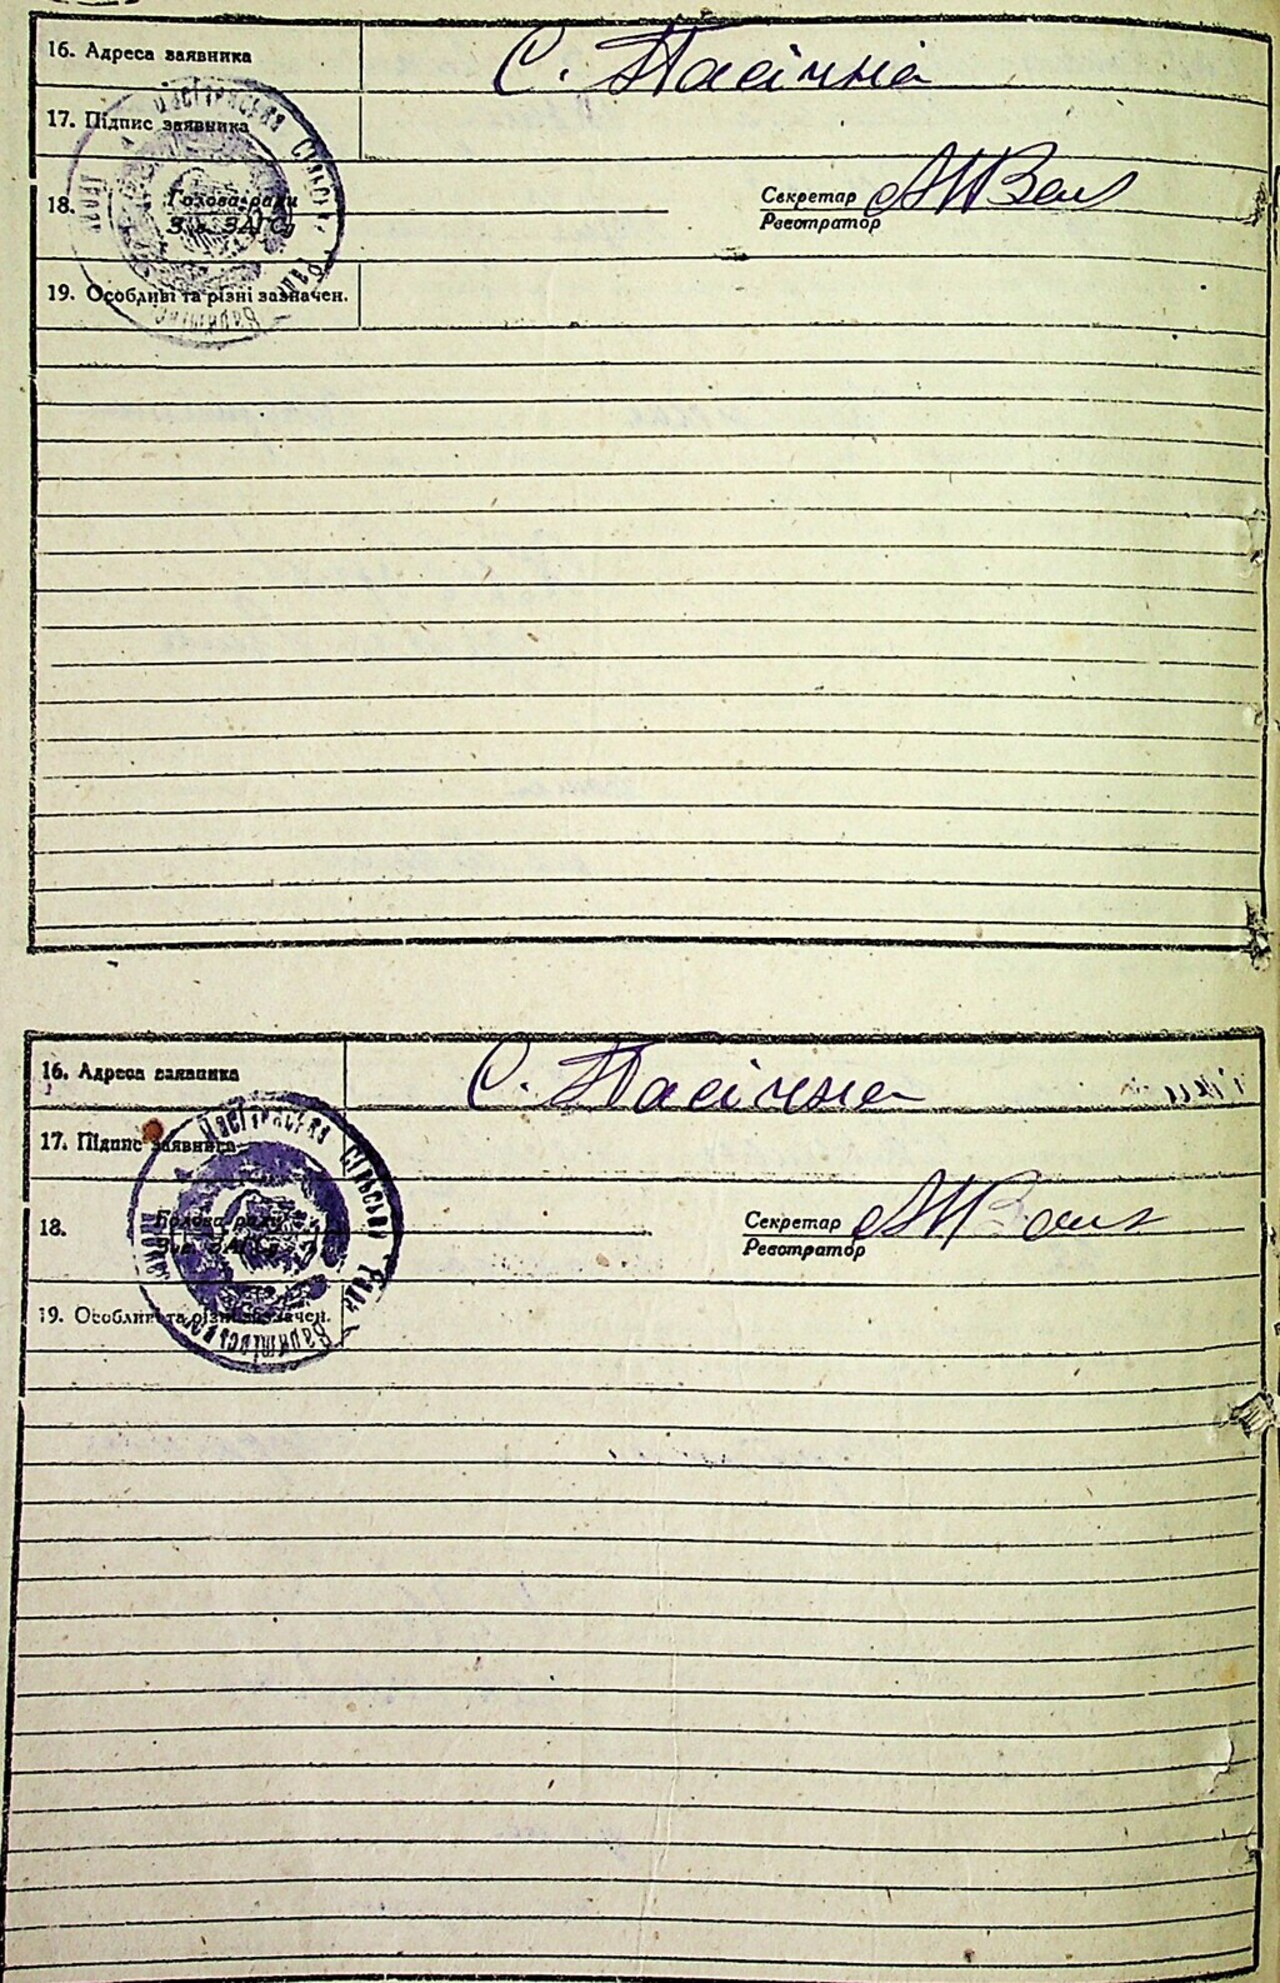 16. Адреса заявника
С. Пасічна
17. Підпис заявника
18.
Голова ради
Зав. ЗАГСу
Секретар
Реєстратор
19. Особливі та різні зазначен.
Сільська Рада
16. Адреса заявника
С. Пасічна
17. Підпис заявника
18.
Голова ради
Зав. ЗАГСу
Секретар
Реєстратор
19. Особливі та різні зазначен.
Сільська Рада